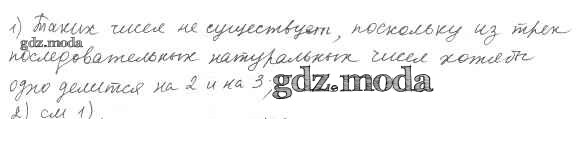 1) Таких чисел не существует, поскольку из трех
gdz.moda
последовательных натуральных чисел хотя бы
одно делится на 2 и на 3.
gdz.moda
2) см 1).